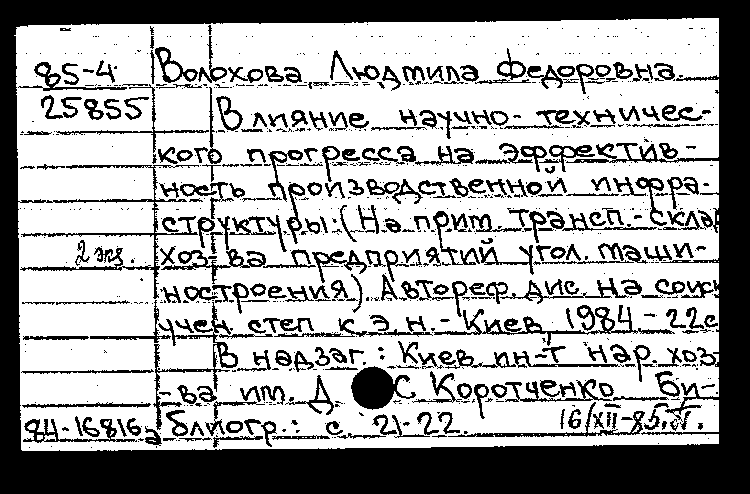 85-4 Волохова, Людмила Федоровна.
25855 Влияние научно-техничес-
кого прогресса на эффектив-
ность производственной инфра-
структуры: (На прим. трансп.-склад
2 экз. хоз-ва предприятий угол. маши-
ностроения). Автореф. дис. на соиск
учен. степ к.э.н. - Киев, 1984 - 22с
В надзаг.: Киев ин-т нар. хоз-
-ва им. Д С Коротченко Би-
84-16816а блиогр.: с. 21-22. 16/XII-85.